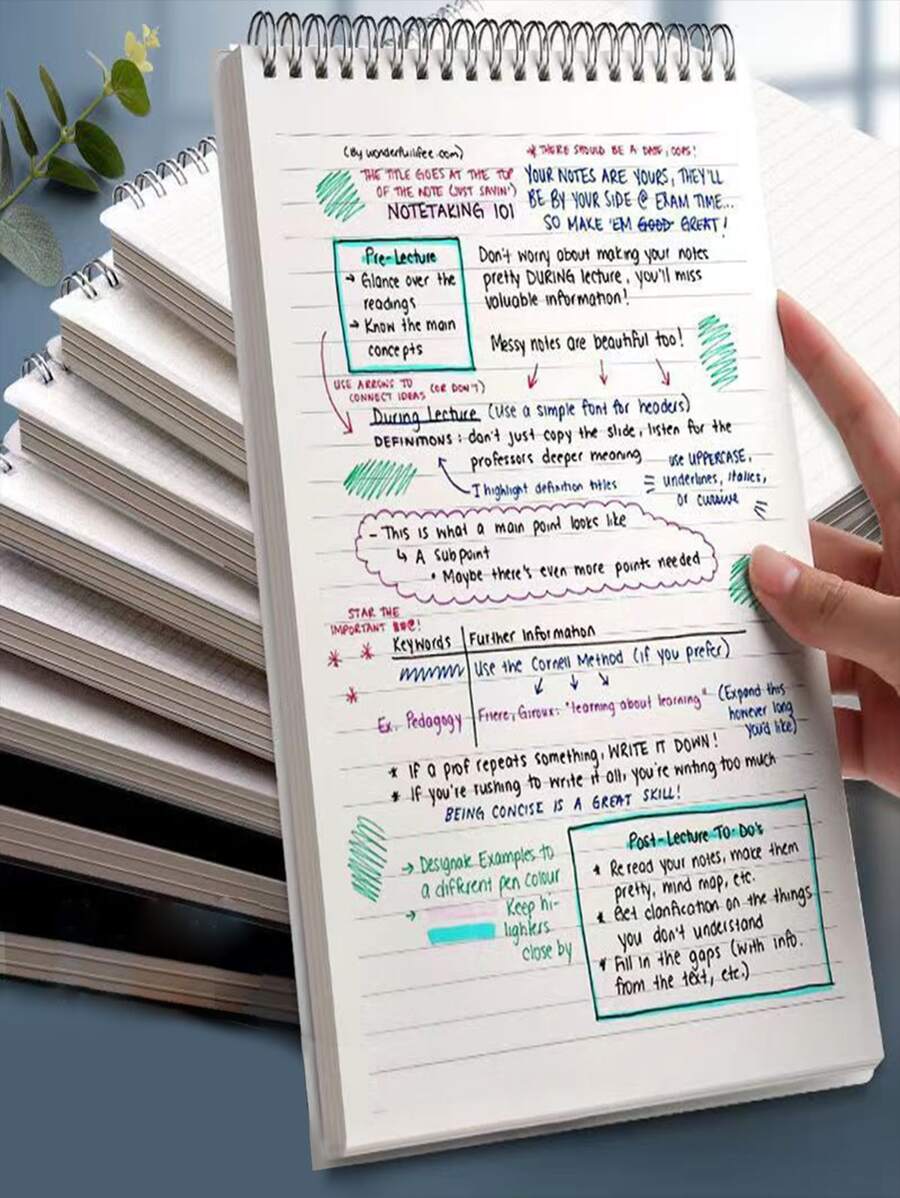 (By wonderfuilifee.com)
* THERE SHOULD BE A DATE, OOPS!
THE TITLE GOES AT THE TOP
OF THE NOTE (JUST SAYIN')
NOTETAKING 101
YOUR NOTES ARE YOURS, THEY'LL
BE BY YOUR SIDE @ EXAM TIME...
SO MAKE 'EM GOOD GREAT!
Pre-Lecture
→ Glance over the
readings
→ Know the main
concepts
Don't worry about making your notes
pretty DURING lecture, you'll miss
valuable information!
Messy notes are beautiful too!
USE ARROWS TO (OR DON'T)
CONNECT IDEAS
During Lecture (Use a simple font for headers)
DEFINITIONS: don't just copy the slide, listen for the
professors deeper meaning
I highlight definition titles
use UPPERCASE,
underlines, italics,
or cursive
- This is what a main point looks like
↳ A Subpoint
• Maybe there's even more points needed
STAR THE
IMPORTANT ##@!
Keywords Further Information
Use the Cornell Method (if you prefer)
Ex. Pedagogy Friere, Giroux: "learning about learning"
(Expand this
however long
you'd like)
* If a prof repeats something, WRITE IT DOWN!
* If you're rushing to write it all, you're writing too much
BEING CONCISE IS A GREAT SKILL!
→ Designate Examples to
a different pen colour
→ Keep hi-
lighters
close by
Post-Lecture To-Do's
* Reread your notes, make them
pretty, mind map, etc.
* Get clarification on the things
you don't understand
* Fill in the gaps (with info.
from the text, etc.)